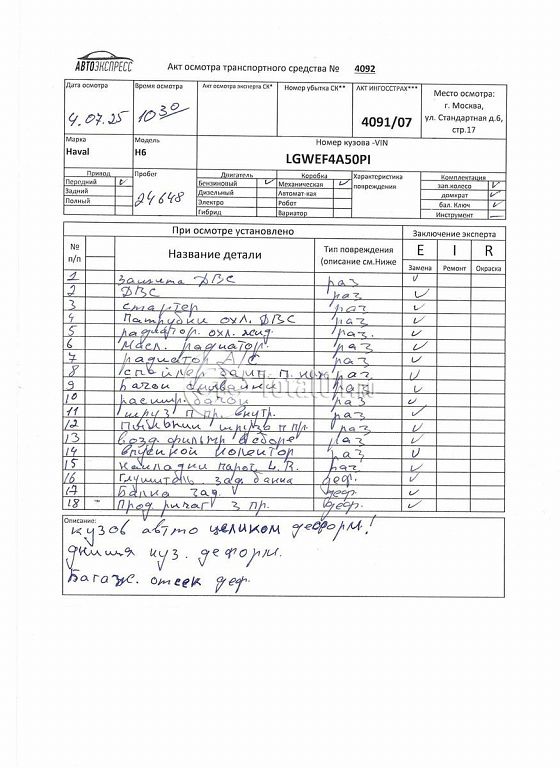 АВТОЭКСПРЕСС
Акт осмотра транспортного средства № 4092
Дата осмотра
4.07.25
Время осмотра
10 30
Акт осмотра эксперта СК*
Номер убытка СК**
АКТ ИНГОССТРАХ***
4091/07
Место осмотра:
г. Москва,
ул. Стандартная д.6,
стр.17
Марка
Haval
Модель
H6
Номер кузова -VIN
LGWEF4A50PI
Привод
Передний
Задний
Полный
Пробег
24648
Двигатель
Бензиновый
Дизельный
Электро
Гибрид
Коробка
Механическая
Автомат-кая
Робот
Вариатор
Характеристика
повреждения
Комплектация
зап.колесо
домкрат
бал. Ключ
Инструмент
При осмотре установлено
Заключение эксперта
№
п/п
Название детали
Тип повреждения
(описание см.Ниже
E I R
Замена Ремонт Окраска
1 Защита ДВС раз
2 ДВС раз
3 стартер раз
4 Патрубки охл. ДВС раз
5 радиатор. охл. жид. раз.
6 Масл. радиатор. раз
7 радиатор А/С раз
8 спойлер бамп. п. ниж раз
9 Бачок раз
10 расшир. бачок раз
11 шруз п пр. внутр. раз
12 шруза п пр. раз
13 возд фильтр в сборе раз
14 впускной колектор раз
15 Накладки порог. L.R. раз
16 Глушитель. зад. банка деф.
17 Балка зад. деф
18 Прод рычаг з пр. деф.
Описание:
кузов автто целиком деформ!
днища куз. деформ.
Багаж. отсек деф.